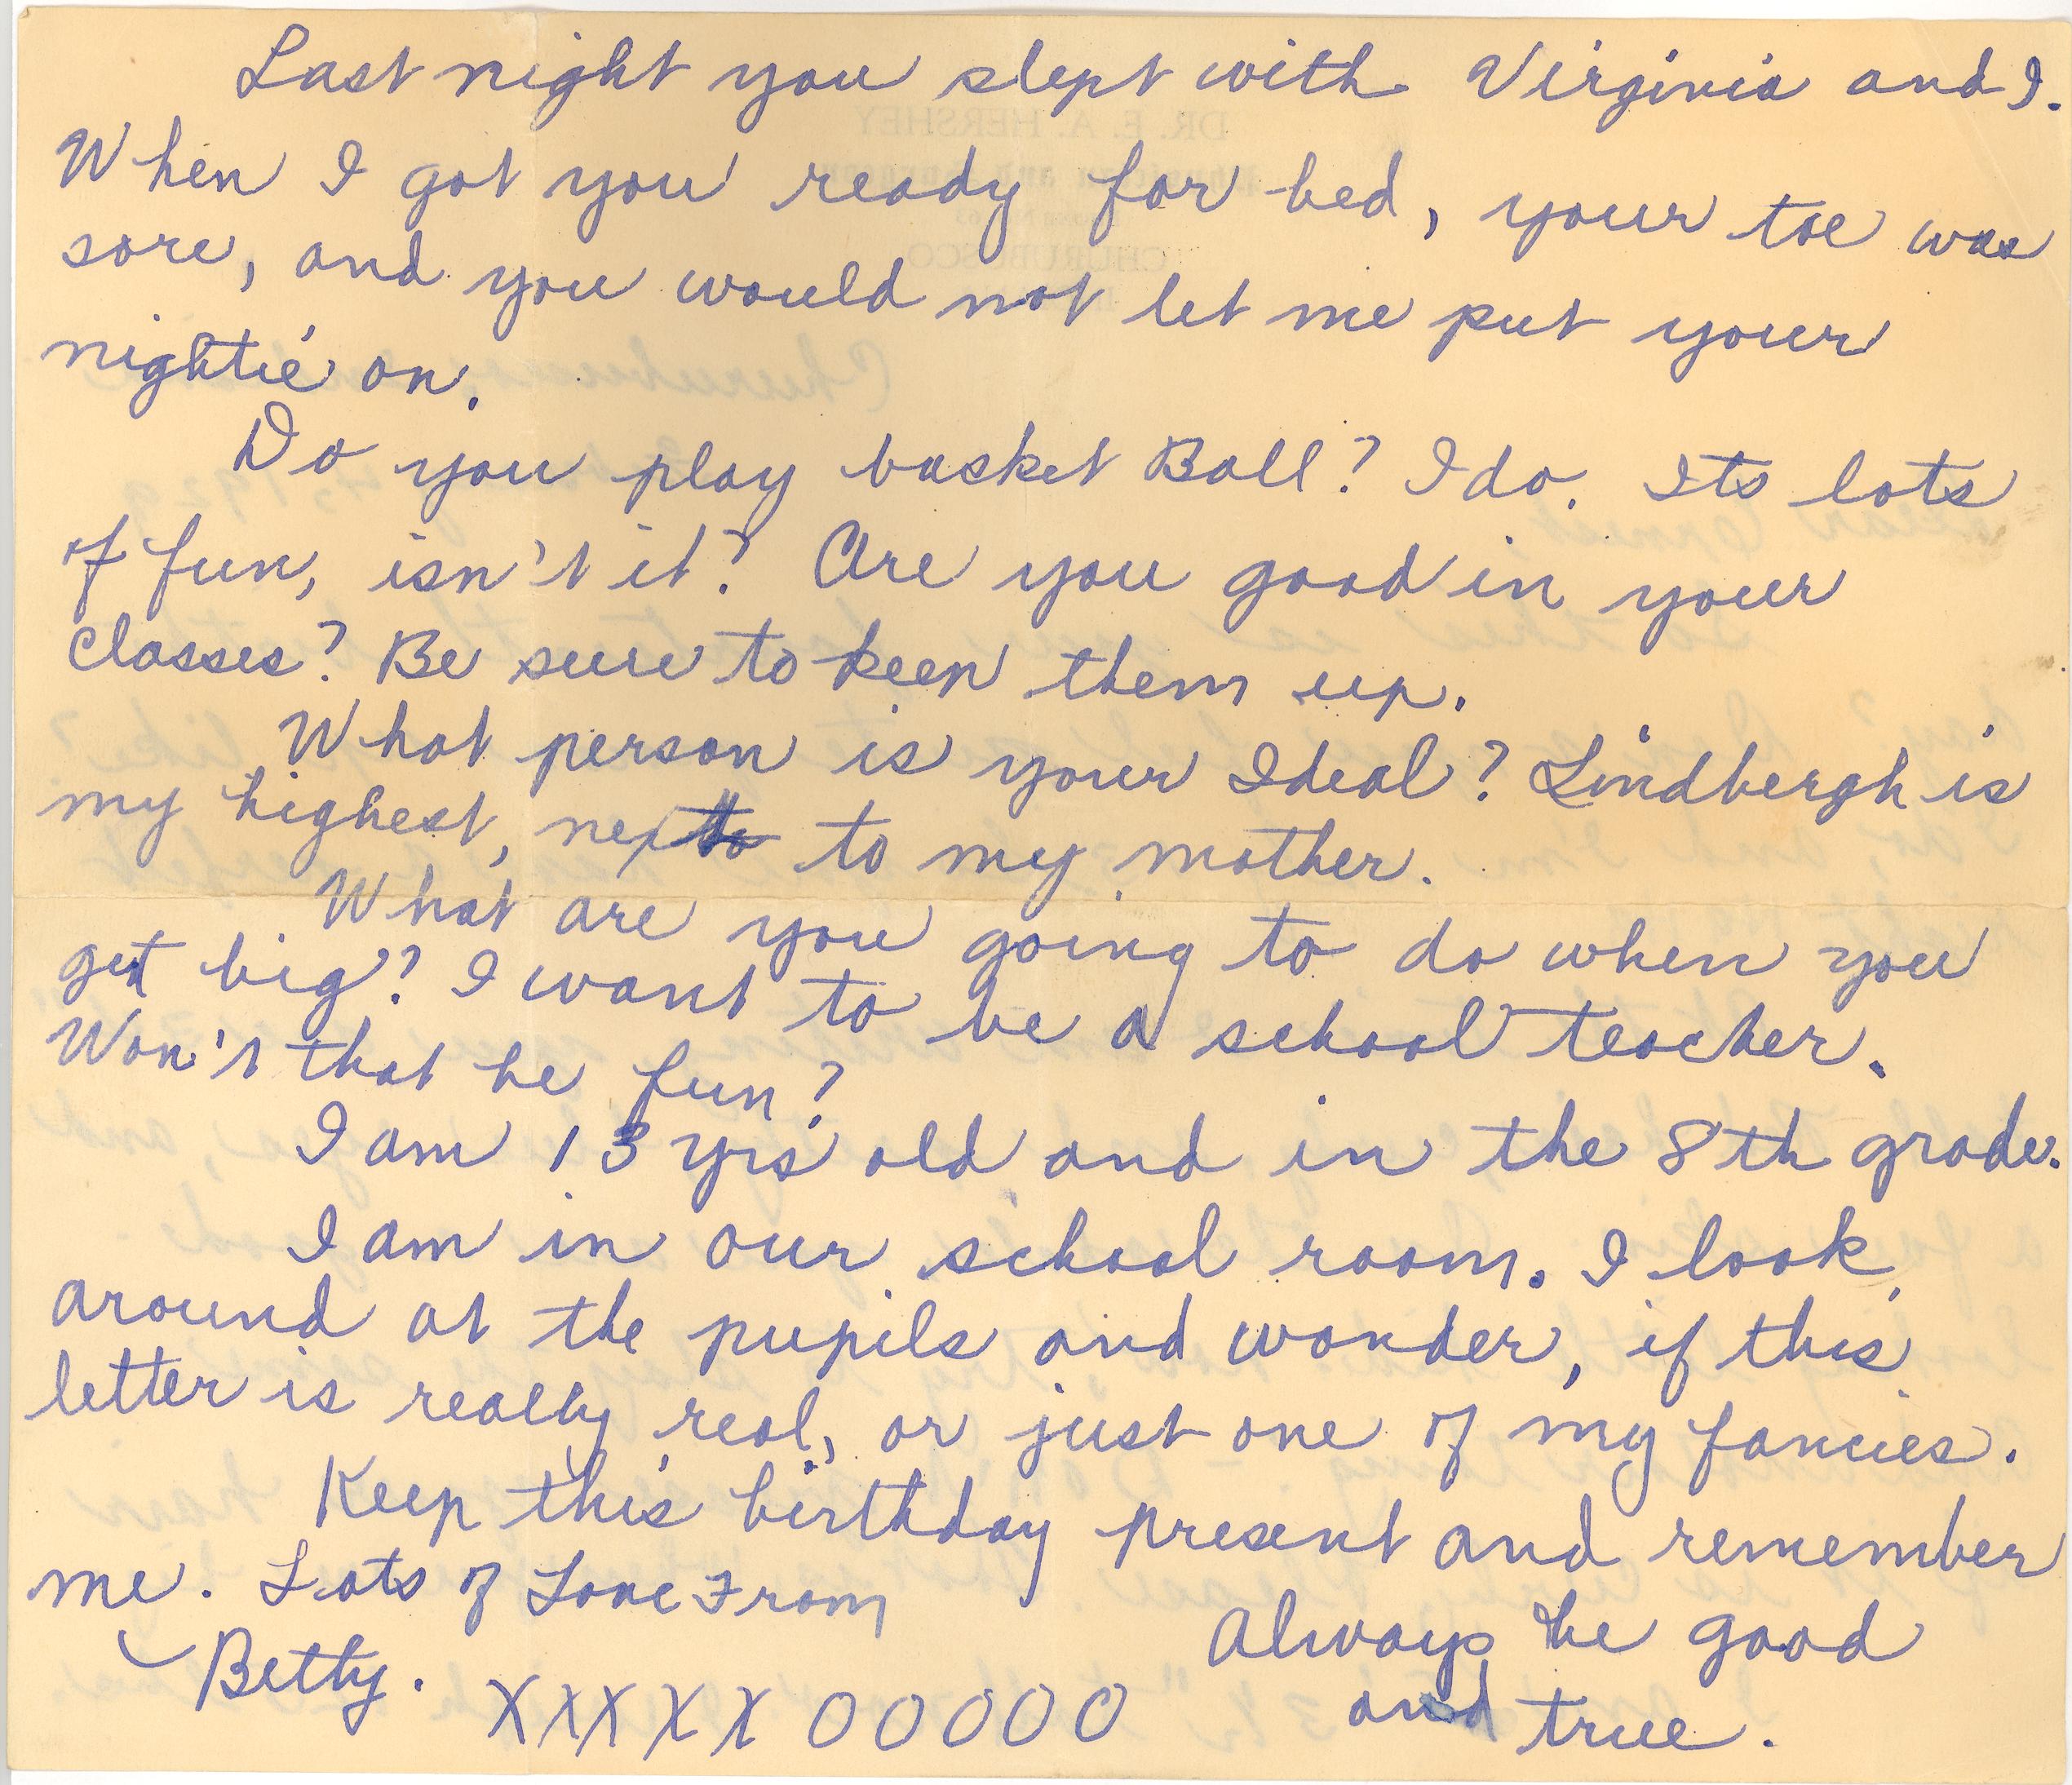 Last night you slept with Virginia and I.
When I got you ready for bed, your toe was
sore, and you would not let me put your
nightie on.
Do you play basket Ball? I do. Its lots
of fun, isn't it? Are you good in your
classes? Be sure to keep them up.
What person is your Ideal? Lindbergh is
my highest, next to my mother.
What are you going to do when you
get big? I want to be a school teacher.
Won't that be fun?
I am 13 yrs old and in the 8th grade.
I am in our school room. I look
around at the pupils and wonder, if this
letter is really real, or just one of my fancies.
Keep this birthday present and remember
me. Lots of Love From
Betty. XXXXX OOOOO
Always be good
and true.
DR. E. A. HERSHEY
Physician and Surgeon
CHURUBUSCO